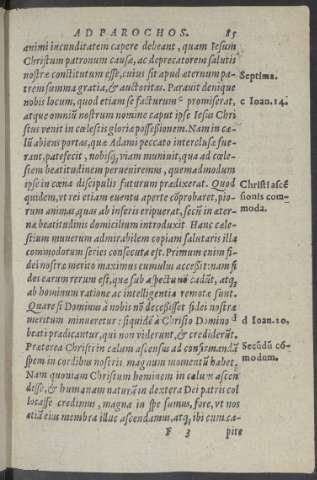 AD PAROCHOS. 85
animi iucunditatem capere debeant, quam Iesum
Christum patronum causæ, ac deprecatorem salutis
nostræ constitutum esse, cuius sit apud æternum pa-
trem summa gratia, & auctoritas. Parauit denique
nobis locum, quod etiam se facturum promiserat,
atque omniũ nostrum nomine caput ipse Iesus Chri
stus venit in cœlestis gloriæ possessionem. Nam in cæ-
lũ abiens portas, quæ Adami peccato interclusæ fue-
rant, patefecit, nobisq́; viam muniuit, qua ad cœle-
stem beatitudinem perueniremus, quemadmodum
ipse in cœna discipulis futurum prædixerat. Quod
quidem, vt rei etiam euentu aperte cõprobaret, pio-
rum animas, quas ab inferis eripuerat, secũ in æter-
næ beatitudinis domicilium introduxit. Hanc cæle-
stium munerum admirabilem copiam salutaris illa
commodorum series consecuta est. Primum enim fi-
dei nostræ merito maximus cumulus accessit: nam fi
des earum rerum est, quæ sub aspectũ nõ cadũt, atq́;
ab hominum ratione ac intelligentia remotæ sunt.
Quare si Dominus à nobis nõ decessisset fidei nostræ
meritum minueretur: siquidẽ à Christo Domino
beati prædicantur, qui non viderunt, & crediderũt.
Præterea Christi in cælum ascensus ad confirmandã
spem in cordibus nostris magnum momentũ habet.
Nam quoniam Christum hominem in cælum ascen
disse, & humanam naturã in dextera Dei patris col
locasse credimus, magna in spe sumus, fore, vt nos
etiã eius membra illuc ascendamus, atq́; ibi cum ca-
F 3 pite
Septima.
c Ioan. 14.
Christi ascẽ
sionis com-
moda.
d Ioan. 20.
Secũdũ cõ-
modum.